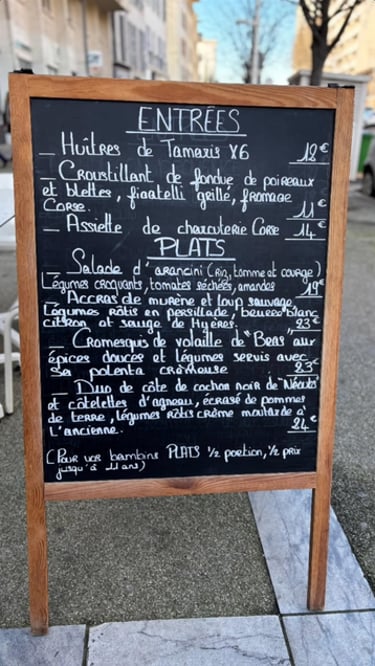 ENTRÉES
_ Huîtres de Tamaris X6 12€
_ Croustillant de fondue de poireaux
et blettes, figatelli grillé, fromage
Corse. 11€
_ Assiette de charcuterie Corse 14€
PLATS
_ Salade d'arancini (Riz, tomme et courge)
Légumes croquants, tomates séchées, amandes 19€
_ Accras de murène et loup sauvage,
Légumes rôtis en persillade, beurre blanc
citron et sauge de Hyères. 23€
_ Cromesquis de volaille de "Bras" aux
épices douces et légumes servis avec
sa polenta crémeuse 23€
_ Duo de côte de cochon noir de "Néoules"
et côtelettes d'agneau, écrasé de pommes
de terre, légumes rôtis crème moutarde à
l'ancienne. 24€
(Pour vos bambins PLATS 1/2 portion, 1/2 prix
jusqu'à 11 ans)